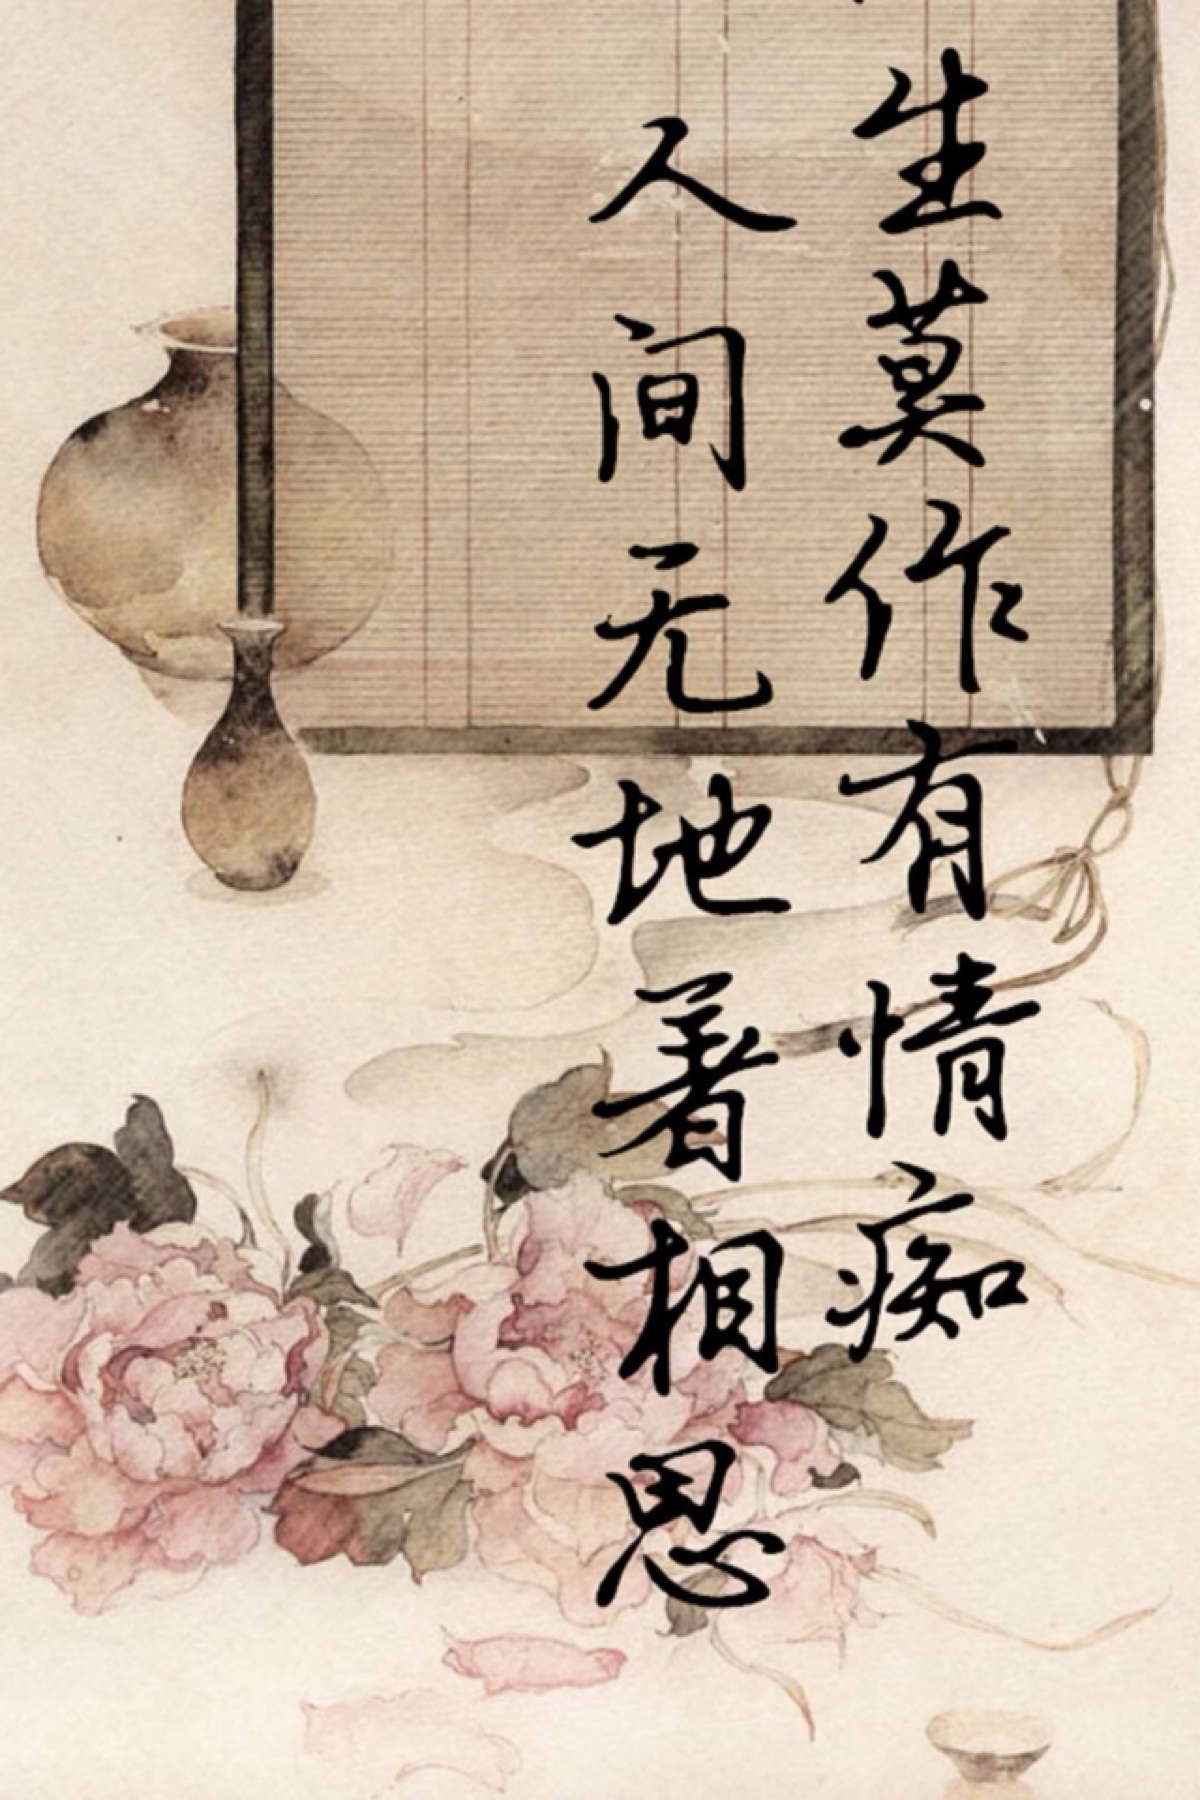 生莫作有情痴
人间无地著相思